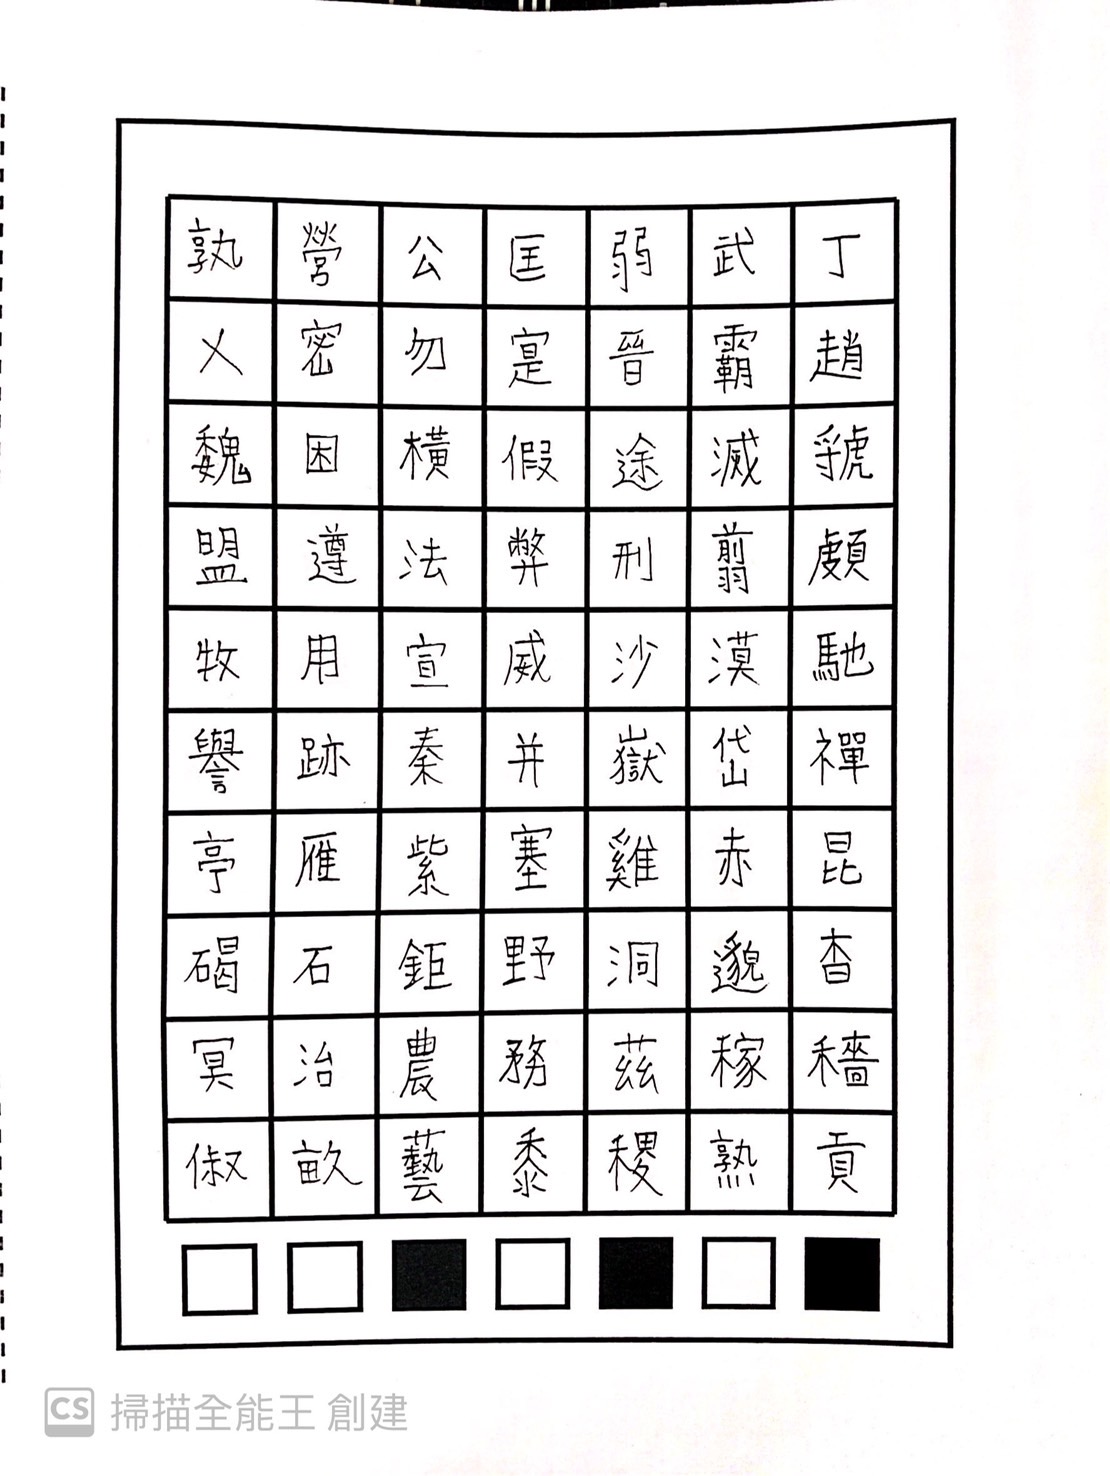 孰營公匡弱武丁
乂密勿寔晉霸趙
魏困橫假途滅虢
盟遵法弊刑翦頗
牧用宣威沙漠馳
譽跡秦并嶽岱禪
亭雁紫塞雞赤昆
碣石鉅野洞邈杳
冥治農務茲稼穡
俶畝藝黍稷熟貢
CS 掃描全能王 創建